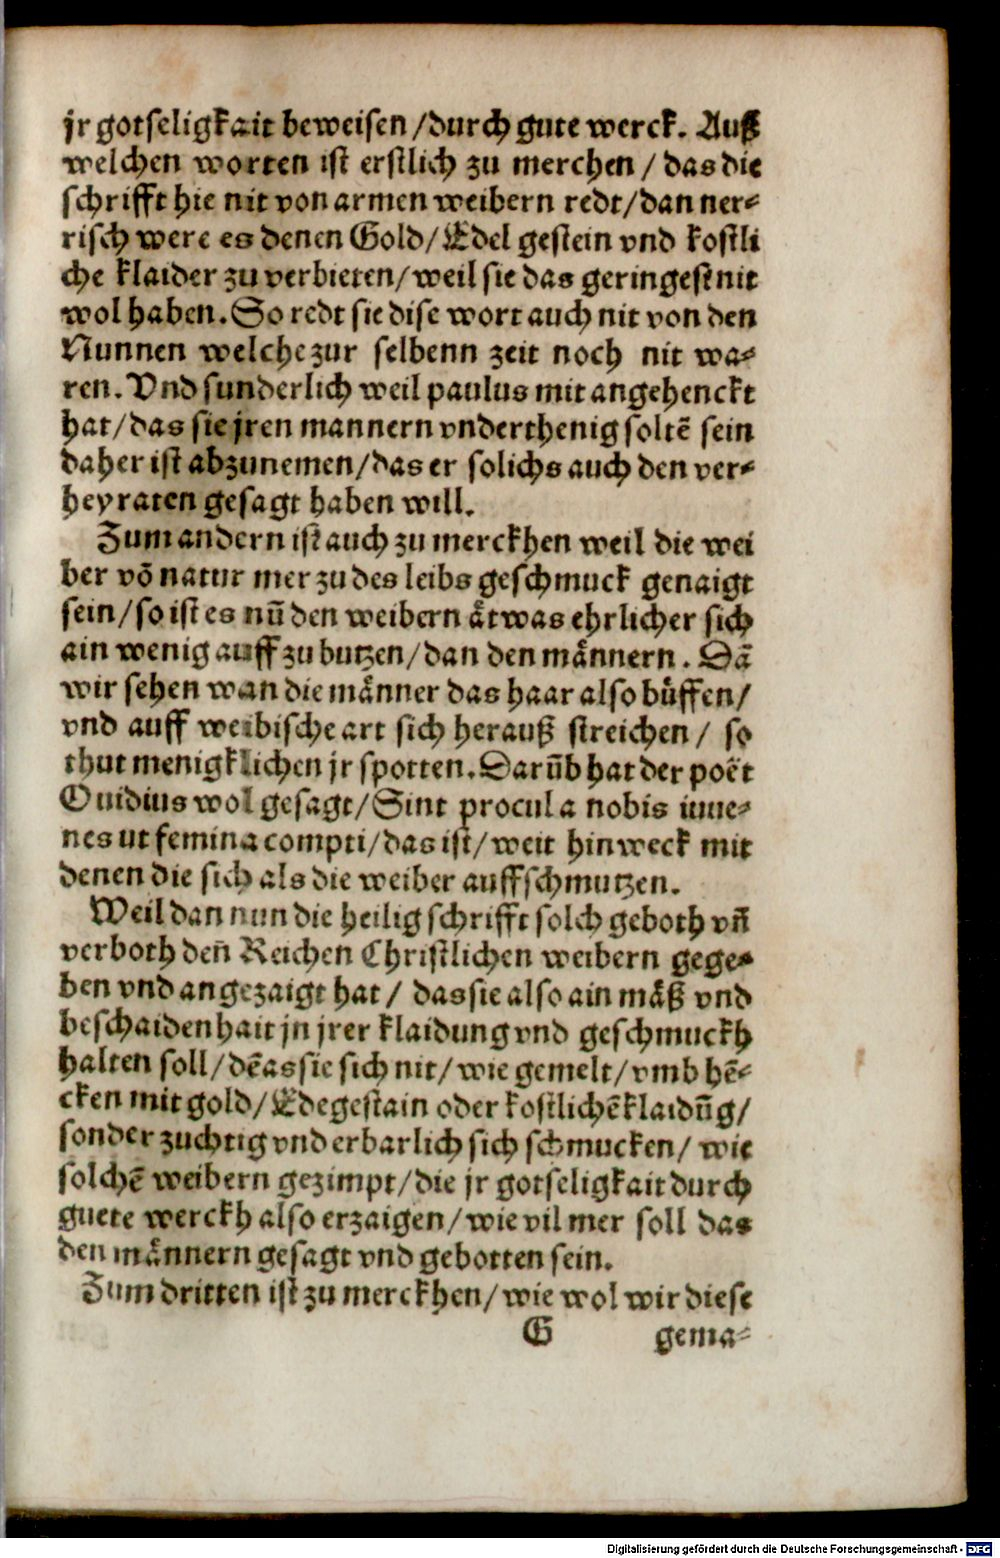 jr gotseligkait beweisen /durch gute werck. Auß
welchen worten ist erstlich zu merchen / das die
schrifft hie nit von armen weibern redt/dan ner⸗
risch were es denen Gold/Edel gestein vnd kostli
che klaider zu verbieten/weil sie das geringest nit
wol haben. So redt sie dise wort auch nit von den
Nunnen welche zur selbenn zeit noch nit wa⸗
ren. Vnd sunderlich weil paulus mit angehenckt
hat/das sie jren mannern vnderthenig soltē sein
daher ist abzunemen/das er solichs auch den ver⸗
heyraten gesagt haben will.
Zum andern ist auch zu merckhen weil die wei
ber vō natur mer zu des leibs geschmuck genaigt
sein/so ist es nū den weibern åtwas ehrlicher sich
ain wenig auff zu butzen/dan den månnern. Dā
wir sehen wan die månner das haar also bůffen/
vnd auff weibische art sich herauß streichen/ so
thut menigklichen jr spotten. Darūb hat der poët
Ouidius wol gesagt/Sint procul a nobis iuue⸗
nes ut femina compti/das ist/weit hinweck mit
denen die sich als die weiber auffschmutzen.
Weil dan nun die heilig schrifft solch geboth vn̄
verboth den̄ Reichen Christlichen weibern gege⸗
ben vnd angezaigt hat/ das sie also ain måß vnd
beschaidenhait jn jrer klaidung vnd geschmuckh
halten soll/dēas sie sich nit/wie gemelt/vmb hē⸗
cken mit gold/Edegestain oder kostlichē klaidūg/
sonder zuchtig vnd erbarlich sich schmucken/ wie
solchē weibern gezimpt/die jr gotseligkait durch
guete werckh also erzaigen/wie vil mer soll das
den månnern gesagt vnd gebotten sein.
Zum dritten ist zu merckhen/wie wol wir diese
G gema⸗
Digitalisierung gefördert durch die Deutsche Forschungsgemeinschaft - DFG